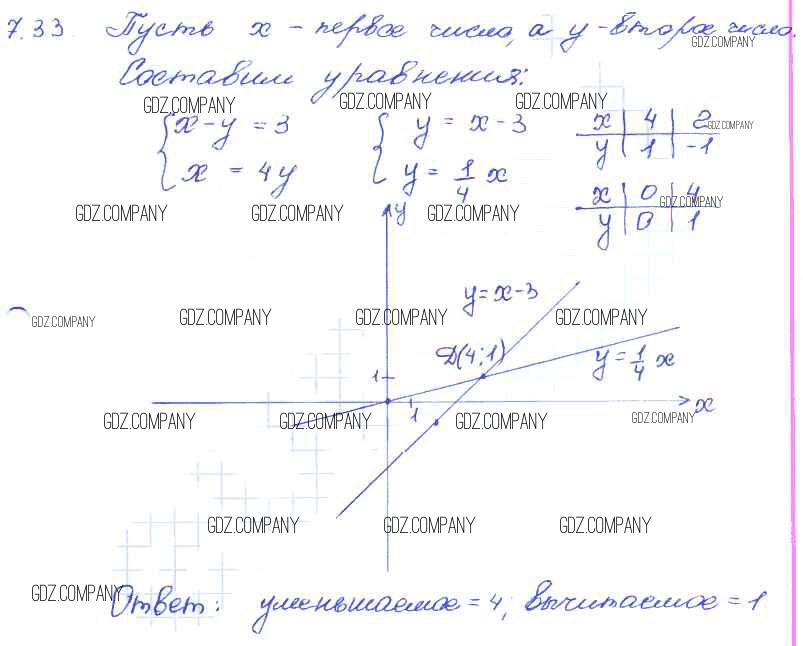 7.33. Пусть x - первое число, а y - второе число.
GDZ.COMPANY
Составим уравнения:
GDZ.COMPANY GDZ.COMPANY GDZ.COMPANY
{ x - y = 3 { y = x - 3 x | 4 | 2
GDZ.COMPANY
{ x = 4y { y = 1/4 x y | 1 | -1
x | 0 | 4
GDZ.COMPANY
y | 0 | 1
GDZ.COMPANY GDZ.COMPANY GDZ.COMPANY
y
y = x - 3
GDZ.COMPANY GDZ.COMPANY GDZ.COMPANY GDZ.COMPANY
D(4; 1)
y = 1/4 x
1
x
1
GDZ.COMPANY GDZ.COMPANY GDZ.COMPANY GDZ.COMPANY
GDZ.COMPANY GDZ.COMPANY GDZ.COMPANY
GDZ.COMPANY
Ответ: уменьшаемое = 4; вычитаемое = 1